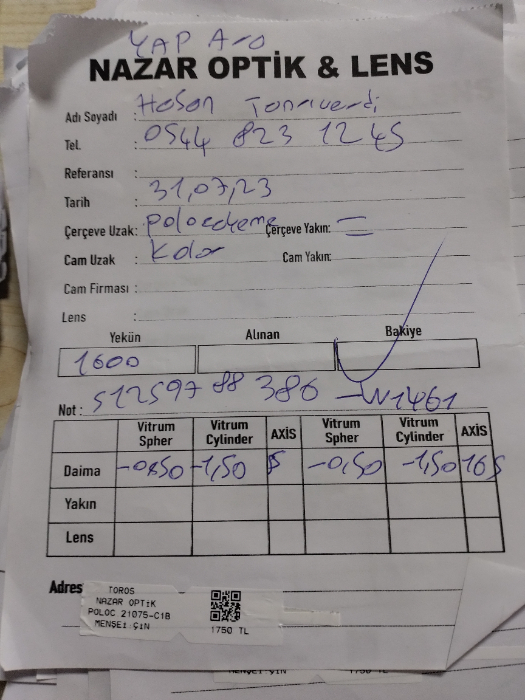 YAP ARO
NAZAR OPTİK & LENS
Adı Soyadı : Hasan Tanrıverdi
Tel. : 0544 823 12 45
Referansı :
Tarih : 31,07,23
Çerçeve Uzak: Çerçeve Yakın: =
Cam Uzak : Cam Yakın:
Cam Firması :
Lens :
Yekün Alınan Bakiye
1600
Not : 512597 88 386 - W1461
Vitrum Spher Vitrum Cylinder AXİS Vitrum Spher Vitrum Cylinder AXİS
Daima -0,50 -1,50 5 -0,50 -1,50 165
Yakın
Lens
Adres
TOROS
NAZAR OPTİK
POLOC 21075-C1B
MENŞEİ ÇİN 1750 TL